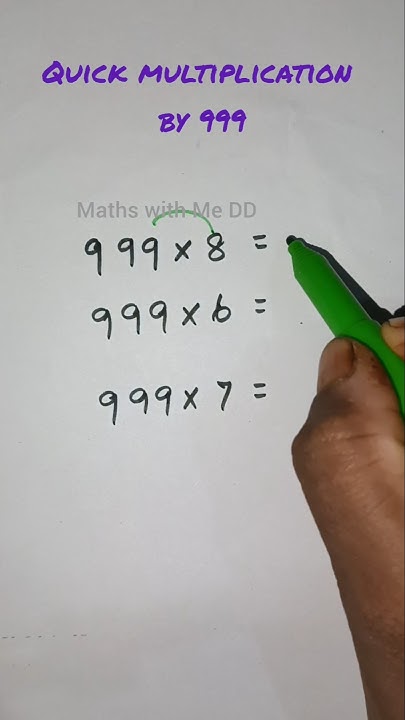 QUICK MULTIPLICATION
BY 999
Maths with Me DD
999 × 8 =
999 × 6 =
999 × 7 =